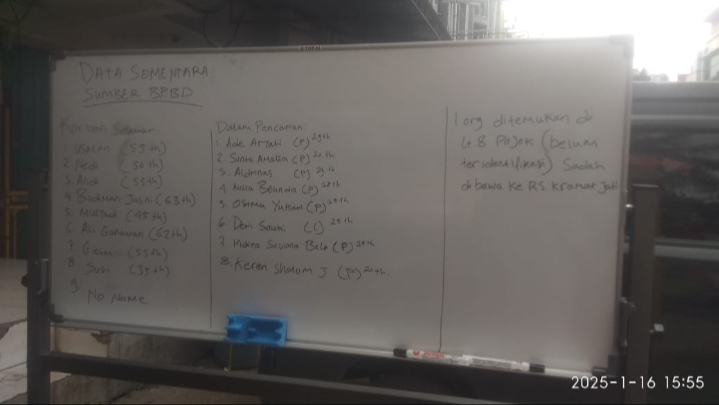 DATA SEMENTARA
SUMBER BPBD
Korban Selamat
1. Usman (55th)
2. Pedi (50th)
3. Andi (55th)
4. Budiman Jasni (63th)
5. Mulyadi (45th)
6. Ali Gunawan (62th)
7. (55th)
8. Susi (35th)
9. No Name
Dalam Pencarian
1. Ade Aryati (P) 29th
2. Sinta Amalia (P) 20th
3. Aldrinas (P) 29th
4. Aulia Belinda (P) 28th
5. Osima Yukari (P) 25th
6. Deri Saiki (L) 25th
7. Indira Seviana Bela (P) 25th
8. Keren Shalom J (P) 21th.
1 org ditemukan di
Lt. 8 Pojok (belum
teridentifikasi) Sudah
dibawa ke RS Kramat Jati
2025-1-16 15:55